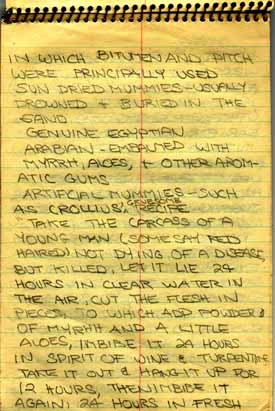 IN WHICH BITUMEN AND PITCH
WERE PRINCIPALLY USED
SUN DRIED MUMMIES - USUALLY
DROWNED & BURIED IN THE
SAND
GENUINE EGYPTIAN
ARABIAN - EMBALMED WITH
MYRRH, ALOES, & OTHER AROM-
ATIC GUMS
ARTIFICIAL MUMMIES - SUCH
AS CROLLIUS' GRUESOME RECIPE
"TAKE THE CARCASS OF A
YOUNG MAN (SOME SAY RED
HAIRED) NOT DYING OF A DISEASE,
BUT KILLED, LET IT LIE 24
HOURS IN CLEAR WATER IN
THE AIR, CUT THE FLESH IN
PIECES, TO WHICH ADD POWDER
OF MYRHH AND A LITTLE
ALOES, IMBIBE IT 24 HOURS
IN SPIRIT OF WINE & TURPENTINE
TAKE IT OUT & HANG IT UP FOR
12 HOURS, THEN IMBIBE IT
AGAIN 24 HOURS IN FRESH